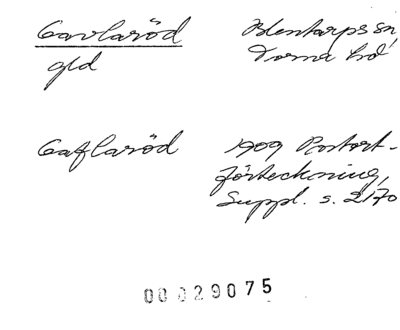 Gavlaröd Blentarps sn,
gld Torna hd
Gaflaröd 1909 Postort-
förteckning,
Suppl. s. 2170
00029075